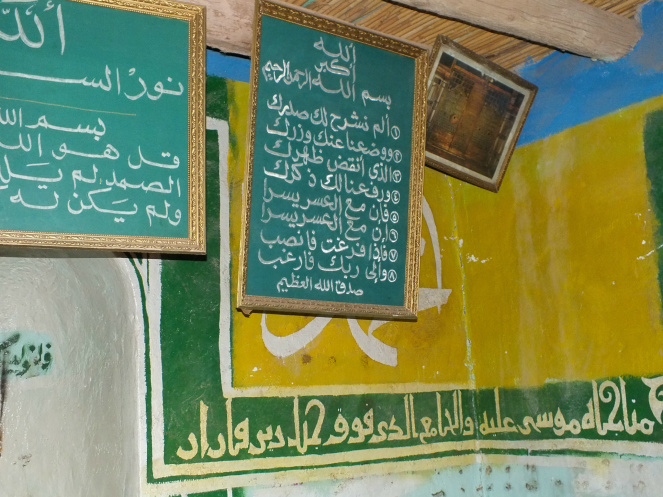 الله
نور الســ
بسم الله
قل هو الله
الصمد لم يَلـ
ولم يَكن له
الله
أكبر
بسم الله الرحمن الرحيم
١ ألم نشرح لك صدرك
٢ ووضعنا عنك وزرك
٣ الذي انقض ظهرك
٤ ورفعنا لك ذكرك
٥ فإن مع العسر يسرا
٦ إن مع العسر يسرا
٧ فإذا فرغت فانصب
٨ وإلى ربك فارغب
صدق الله العظيم
مناجاه موسى عليه والجامع الذي فوق جبل دير